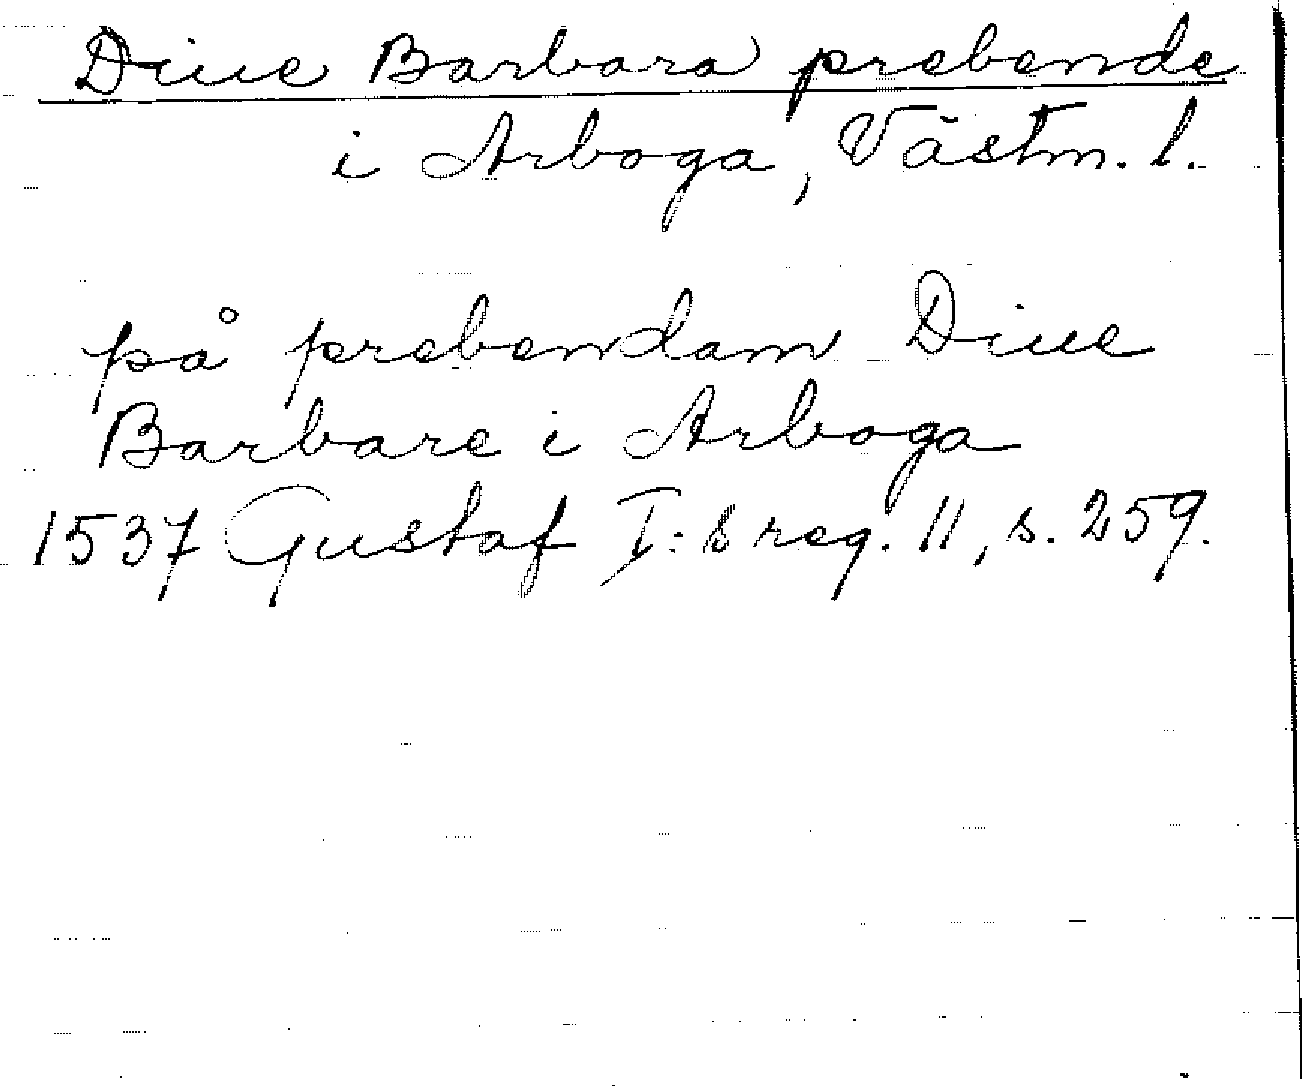 Diue Barbara prebende
i Arboga, Västm. l.
på prebendam Diue
Barbare i Arboga
1537 Gustaf I:s reg. 11, s. 259.